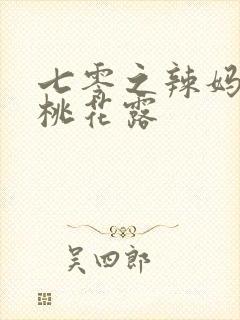 七零之辣妈
桃花露
吴四郎